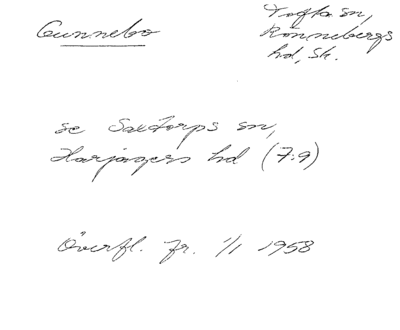 Gunnebo
Tofta sn,
Rönnebergs
hd, Sk.
se Saxtorps sn,
Harjagers hd (7:9)
Överfl. fr. 1/1 1958